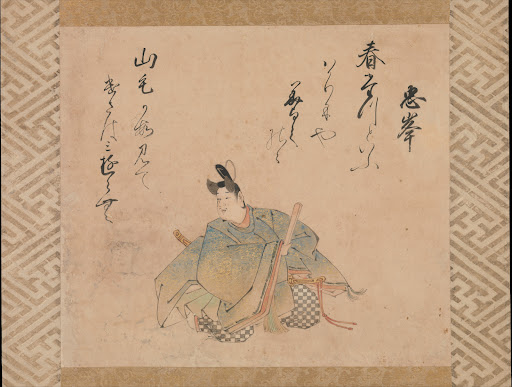 忠峯
春たつといふ
はかりにや
みよしのゝ
山毛かすみて
けさは三ゆらむ